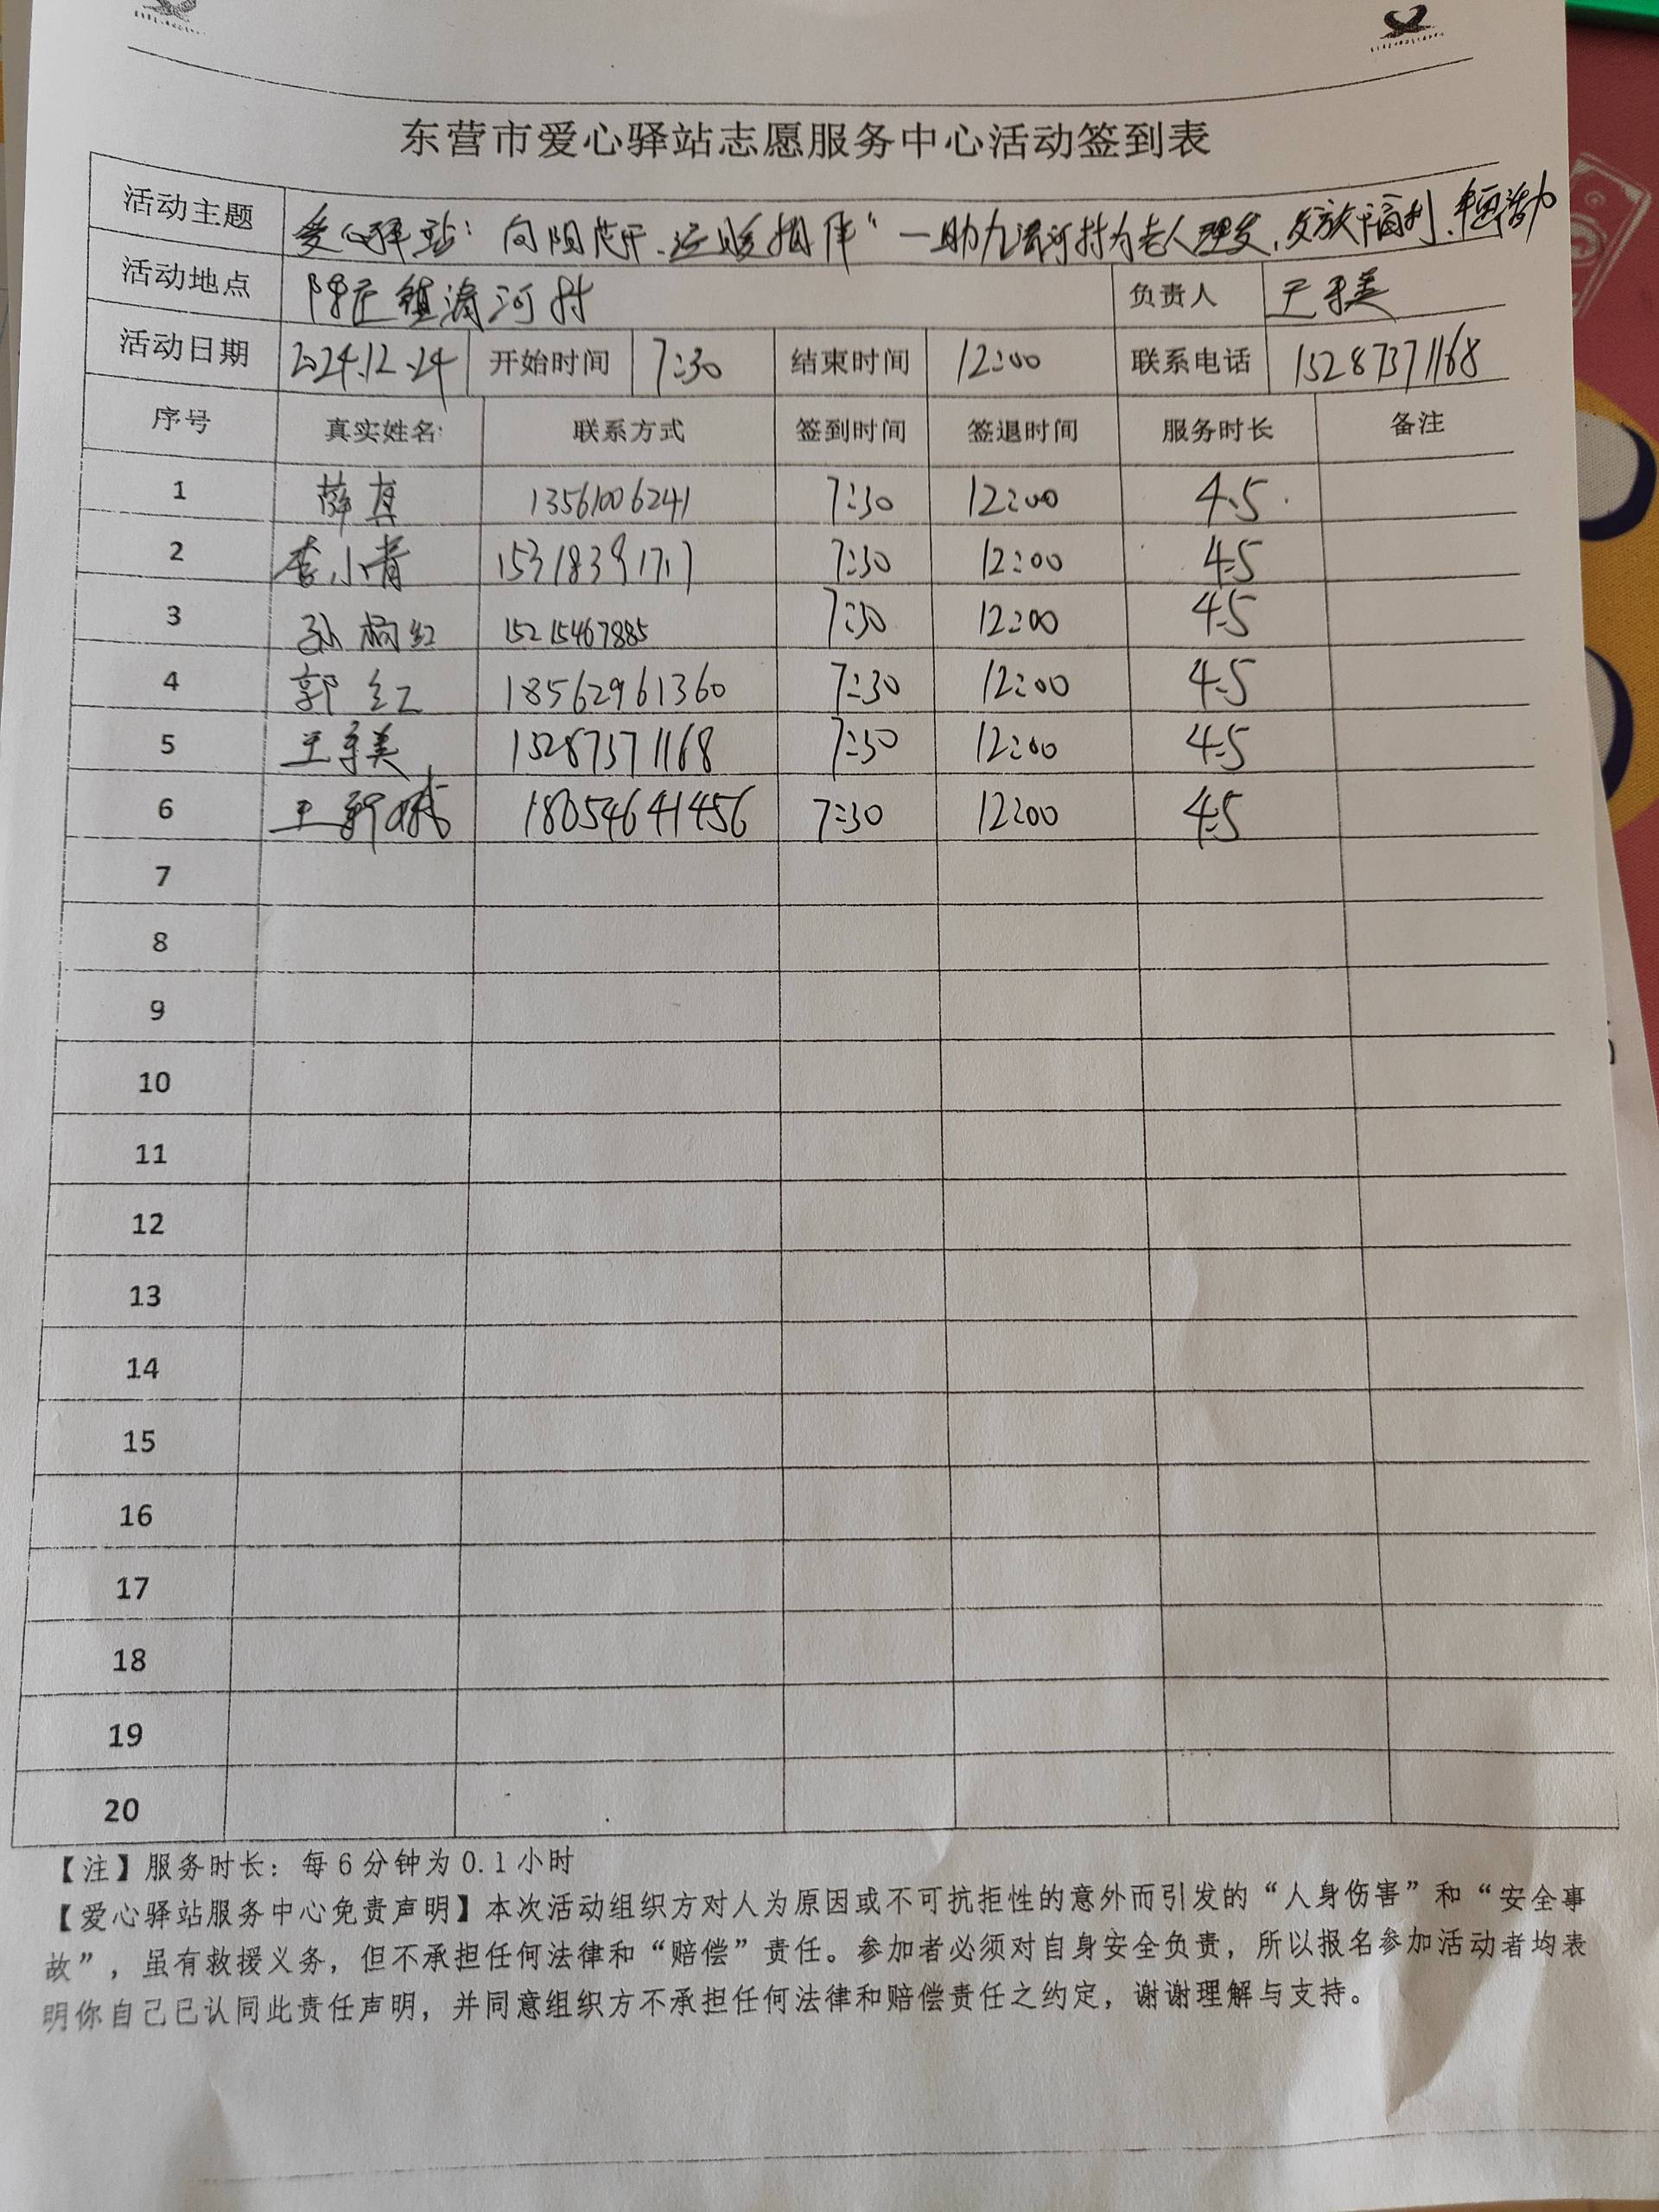 东营市爱心驿站志愿服务中心活动签到表
活动主题 爱心驿站: 向阳 "一助力清河村为老人理发,发放福利,活动
活动地点 镇清河村 负责人 王美
活动日期 2024.12.24 开始时间 7:30 结束时间 12:00 联系电话 15287371168
序号 真实姓名 联系方式 签到时间 签退时间 服务时长 备注
1 薛真 13561006241 7:30 12:00 4.5
2 李小青 15318391717 7:30 12:00 4.5
3 孙红 15215467885 7:30 12:00 4.5
4 郭红 18562961360 7:30 12:00 4.5
5 王美 15287371168 7:30 12:00 4.5
6 王新 18054641456 7:30 12:00 4.5
7
8
9
10
11
12
13
14
15
16
17
18
19
20
【注】服务时长:每6分钟为0.1小时
【爱心驿站服务中心免责声明】本次活动组织方对人为原因或不可抗拒性的意外而引发的“人身伤害”和“安全事
故”,虽有救援义务,但不承担任何法律和“赔偿”责任。参加者必须对自身安全负责,所以报名参加活动者均表
明你自己已认同此责任声明,并同意组织方不承担任何法律和赔偿责任之约定,谢谢理解与支持。